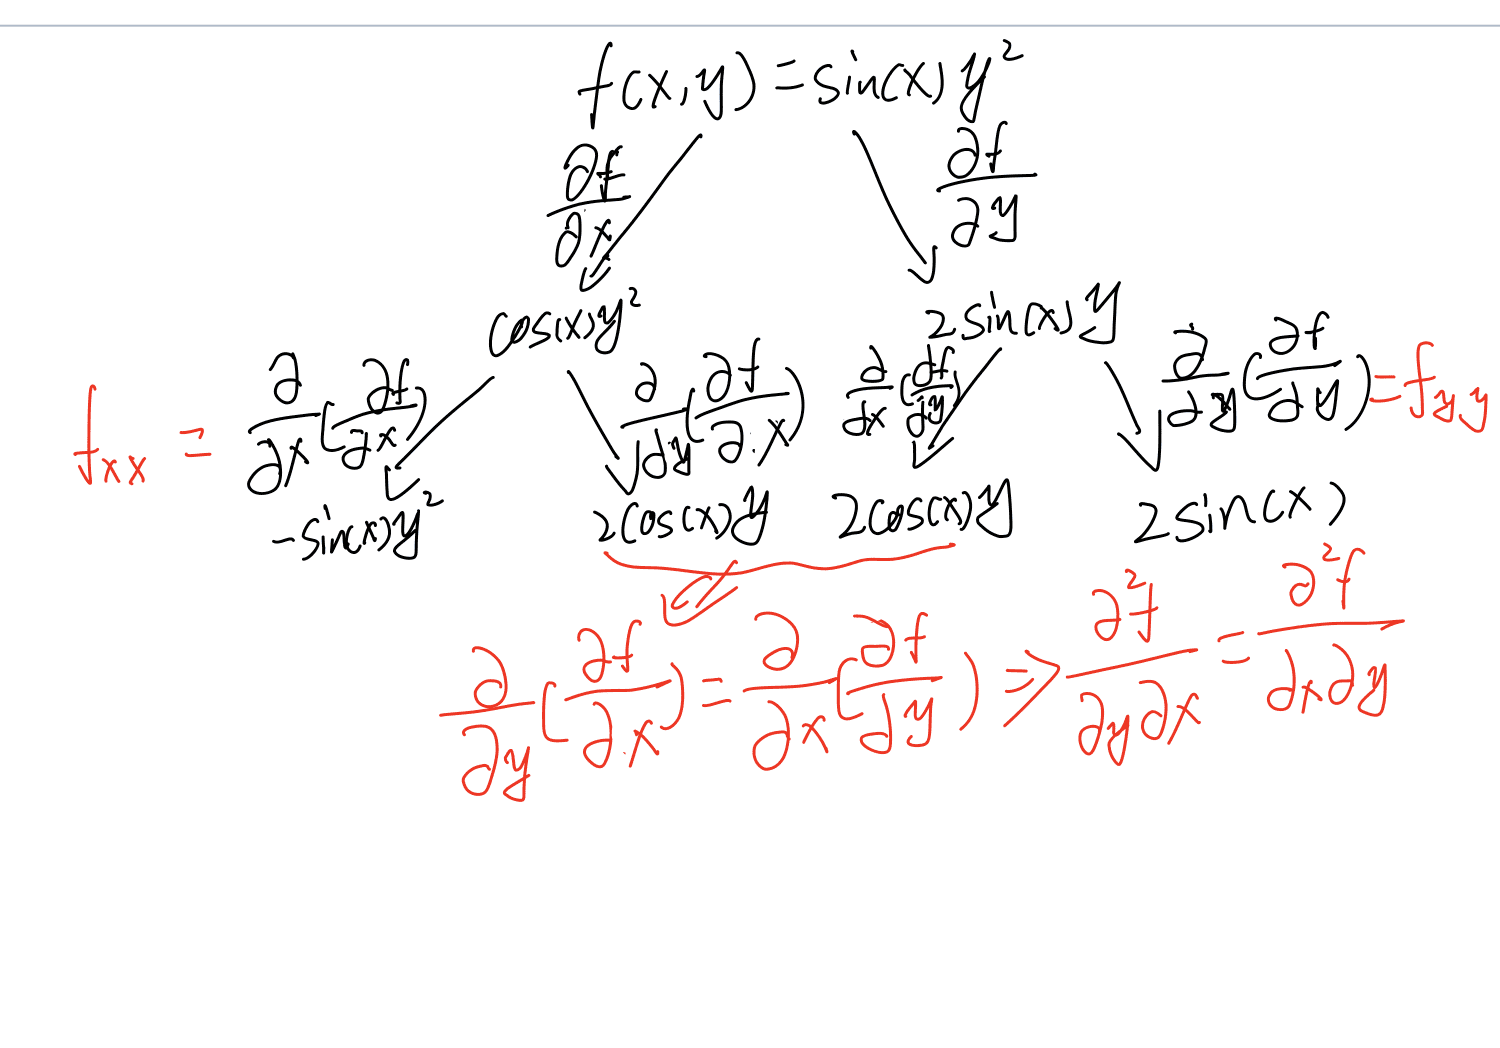 f(x,y) = sin(x) y²
∂f/∂x ∂f/∂y
cos(x)y² 2sin(x)y
fxx = ∂/∂x (∂f/∂x) ∂/∂y (∂f/∂x) ∂/∂x (∂f/∂y) ∂/∂y (∂f/∂y) = fyy
-sin(x)y² 2cos(x)y 2cos(x)y 2sin(x)
∂/∂y (∂f/∂x) = ∂/∂x (∂f/∂y) ⇒ ∂²f/∂y∂x = ∂²f/∂x∂y